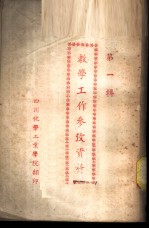 第一輯
教學工作參攷資料
四川化學工業學院翻印